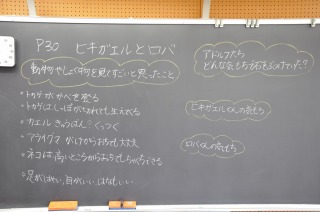 P30 ヒキガエルとロバ
動物やしょく物を見てすごいと思ったこと
・トカゲがかべを登る
・トカゲはしっぽがきれても生えてくる
・カエル きゅうばん? くっつく
・アライグマ がけからおちても大丈夫
・ネコは高いところからおちてもちゃくちできる
・足がはやい、目がいい、はながいい
アドルフたち
どんな気もちで石をぶつけていた?
ヒキガエルくんの気もち
ロバくんの気もち